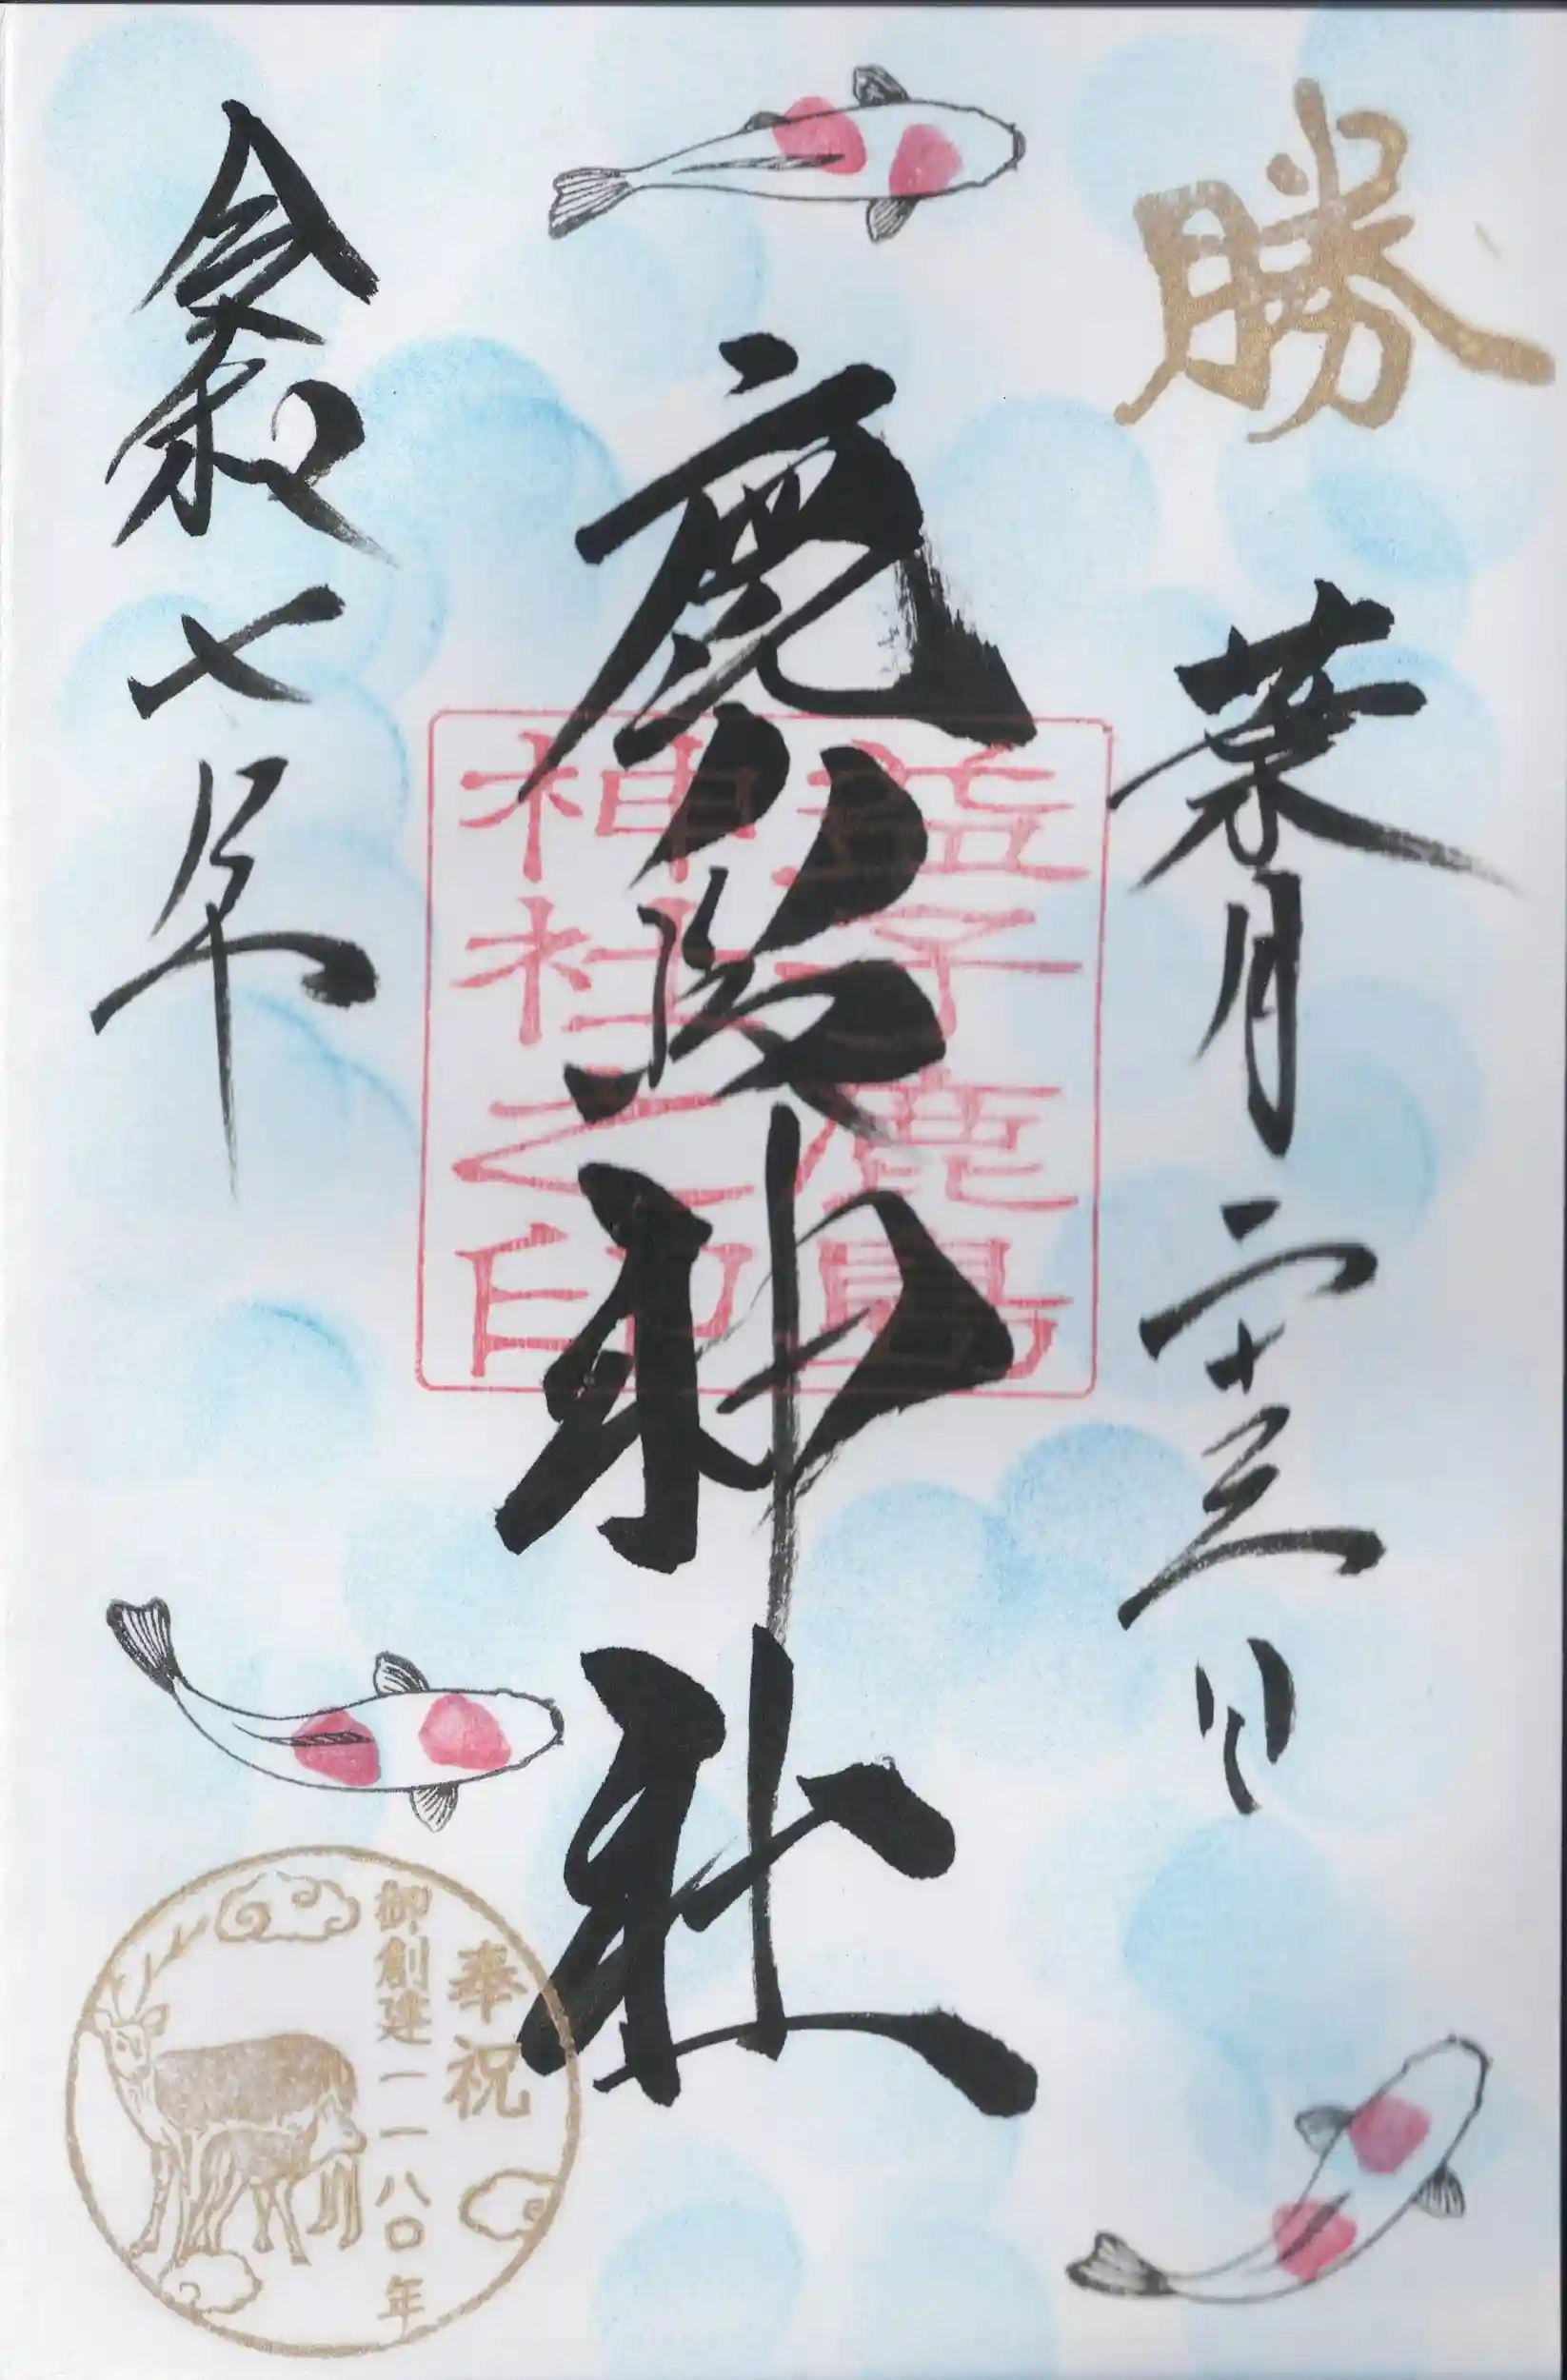 勝
葉月二十三日
鹿島神社
益子鹿島
神社之印
令和七年
奉祝
御創建一一八〇年